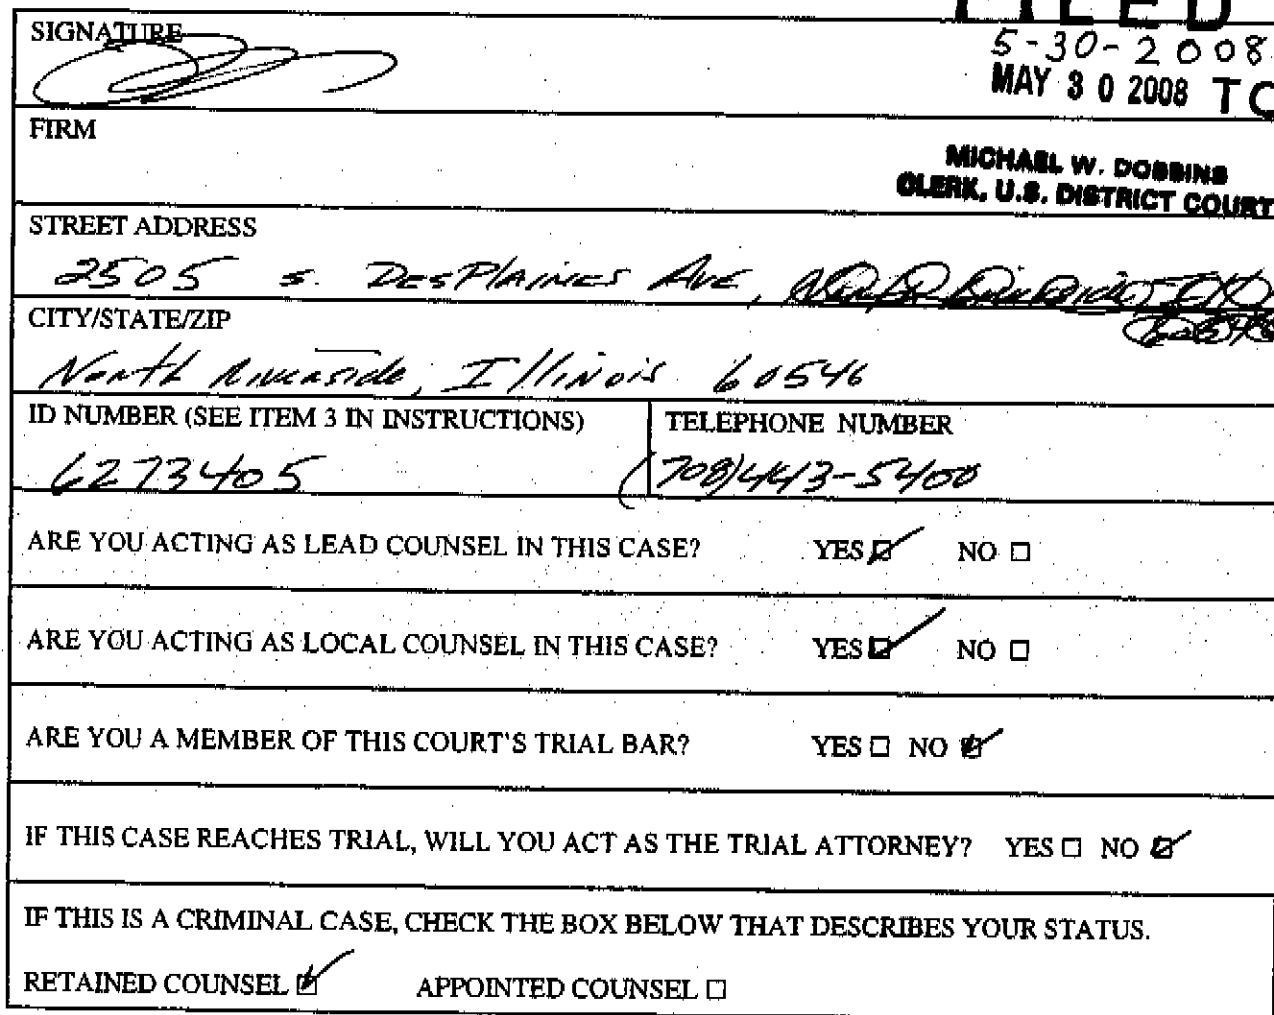 FILED
SIGNATURE
5-30-2008
MAY 30 2008 TC
FIRM
MICHAEL W. DOBBINS
CLERK, U.S. DISTRICT COURT
STREET ADDRESS
2505 S. DesPlaines Ave,
CITY/STATE/ZIP
North Riverside, Illinois 60546
ID NUMBER (SEE ITEM 3 IN INSTRUCTIONS) TELEPHONE NUMBER
6273405 (708)443-5400
ARE YOU ACTING AS LEAD COUNSEL IN THIS CASE? YES ☑ NO ☐
ARE YOU ACTING AS LOCAL COUNSEL IN THIS CASE? YES ☑ NO ☐
ARE YOU A MEMBER OF THIS COURT'S TRIAL BAR? YES ☐ NO ☑
IF THIS CASE REACHES TRIAL, WILL YOU ACT AS THE TRIAL ATTORNEY? YES ☐ NO ☑
IF THIS IS A CRIMINAL CASE, CHECK THE BOX BELOW THAT DESCRIBES YOUR STATUS.
RETAINED COUNSEL ☑ APPOINTED COUNSEL ☐